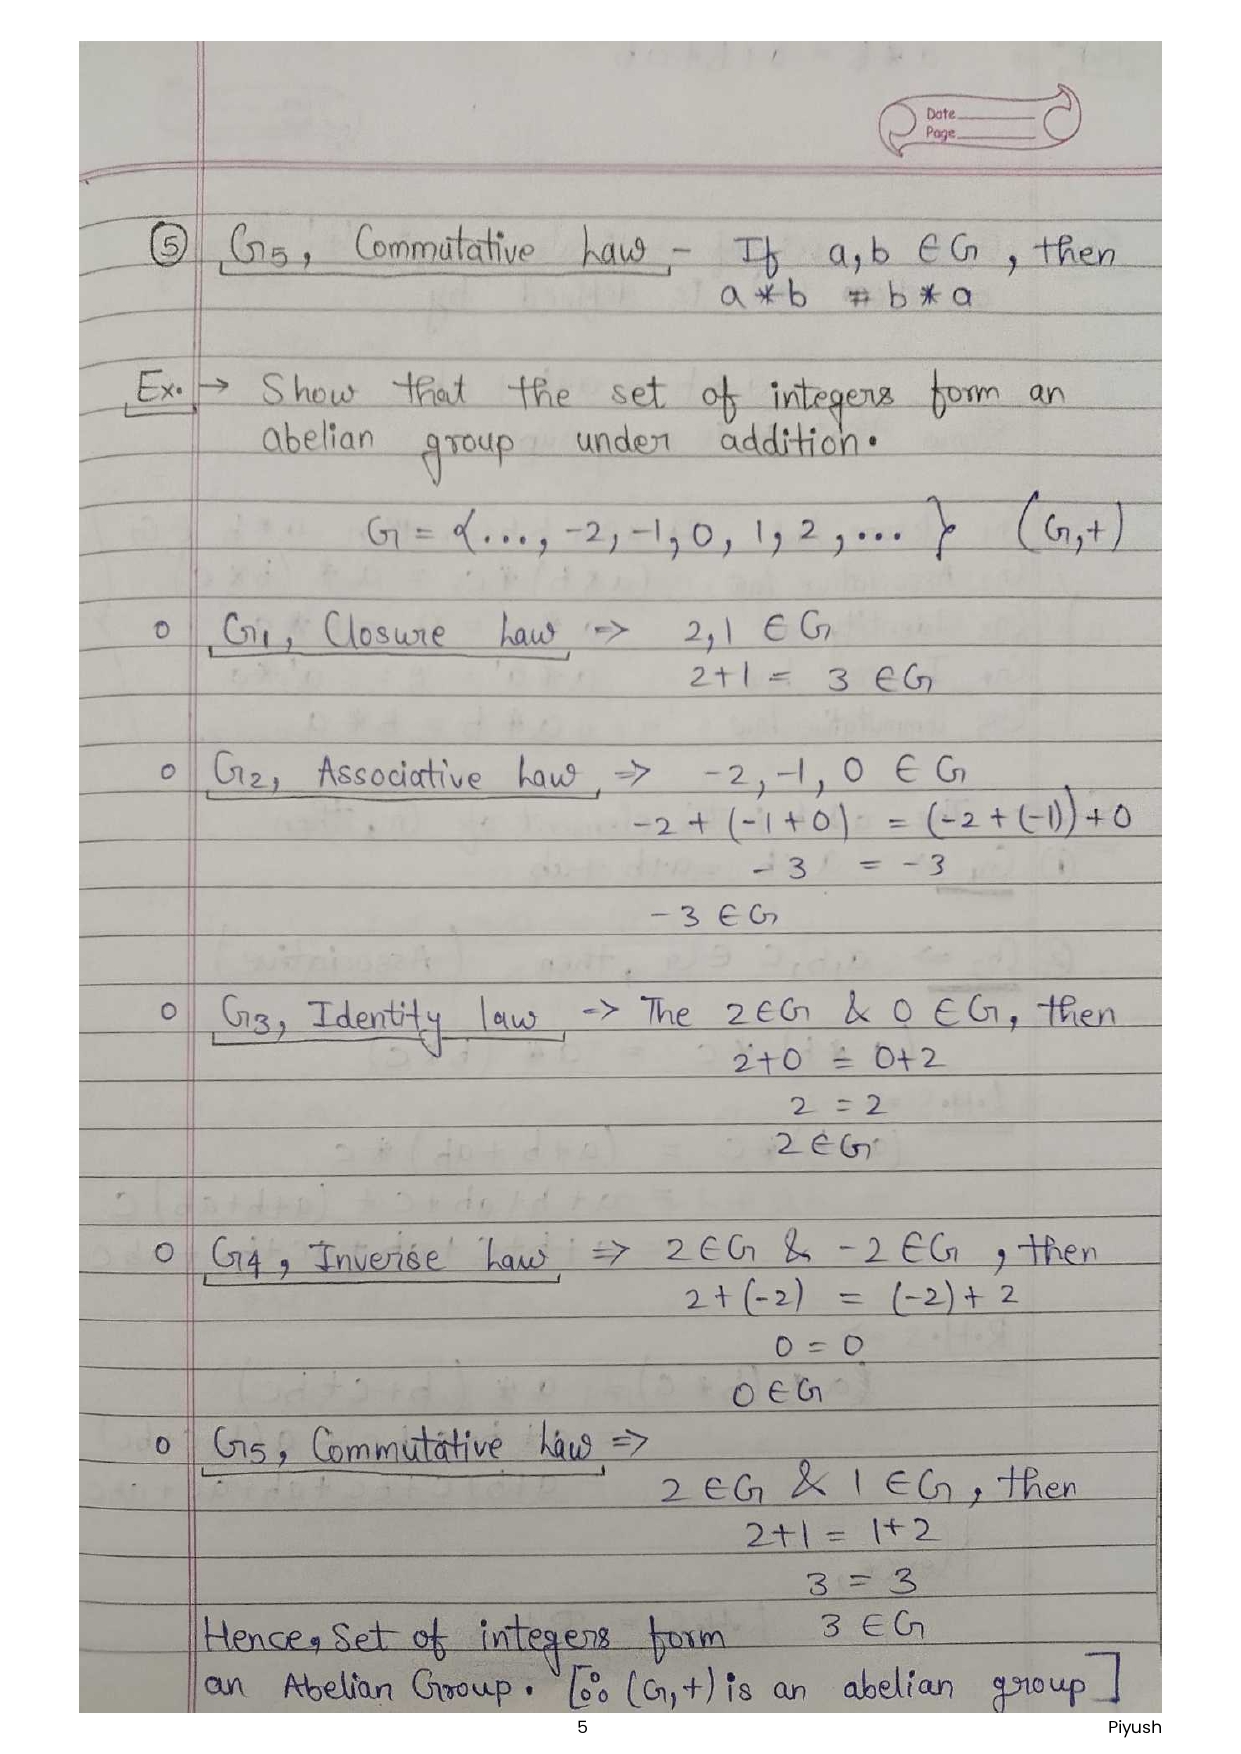 Date
Page
⑤ G5, Commutative Law - If a, b ∈ G, then
a * b = b * a
Ex. → Show that the set of integers form an
abelian group under addition.
G = {..., -2, -1, 0, 1, 2, ... } (G,+)
o G1, Closure Law => 2, 1 ∈ G
2+1 = 3 ∈ G
o G2, Associative Law => -2, -1, 0 ∈ G
-2 + (-1+0) = (-2 + (-1)) + 0
-3 = -3
-3 ∈ G
o G3, Identity law => The 2 ∈ G & 0 ∈ G, then
2+0 = 0+2
2 = 2
2 ∈ G
o G4, Inverse Law => 2 ∈ G & -2 ∈ G, then
2 + (-2) = (-2) + 2
0 = 0
0 ∈ G
o G5, Commutative Law =>
2 ∈ G & 1 ∈ G, then
2+1 = 1+2
3 = 3
3 ∈ G
Hence, Set of integers form
an Abelian Group. [∴ (G,+) is an abelian group]
5
Piyush